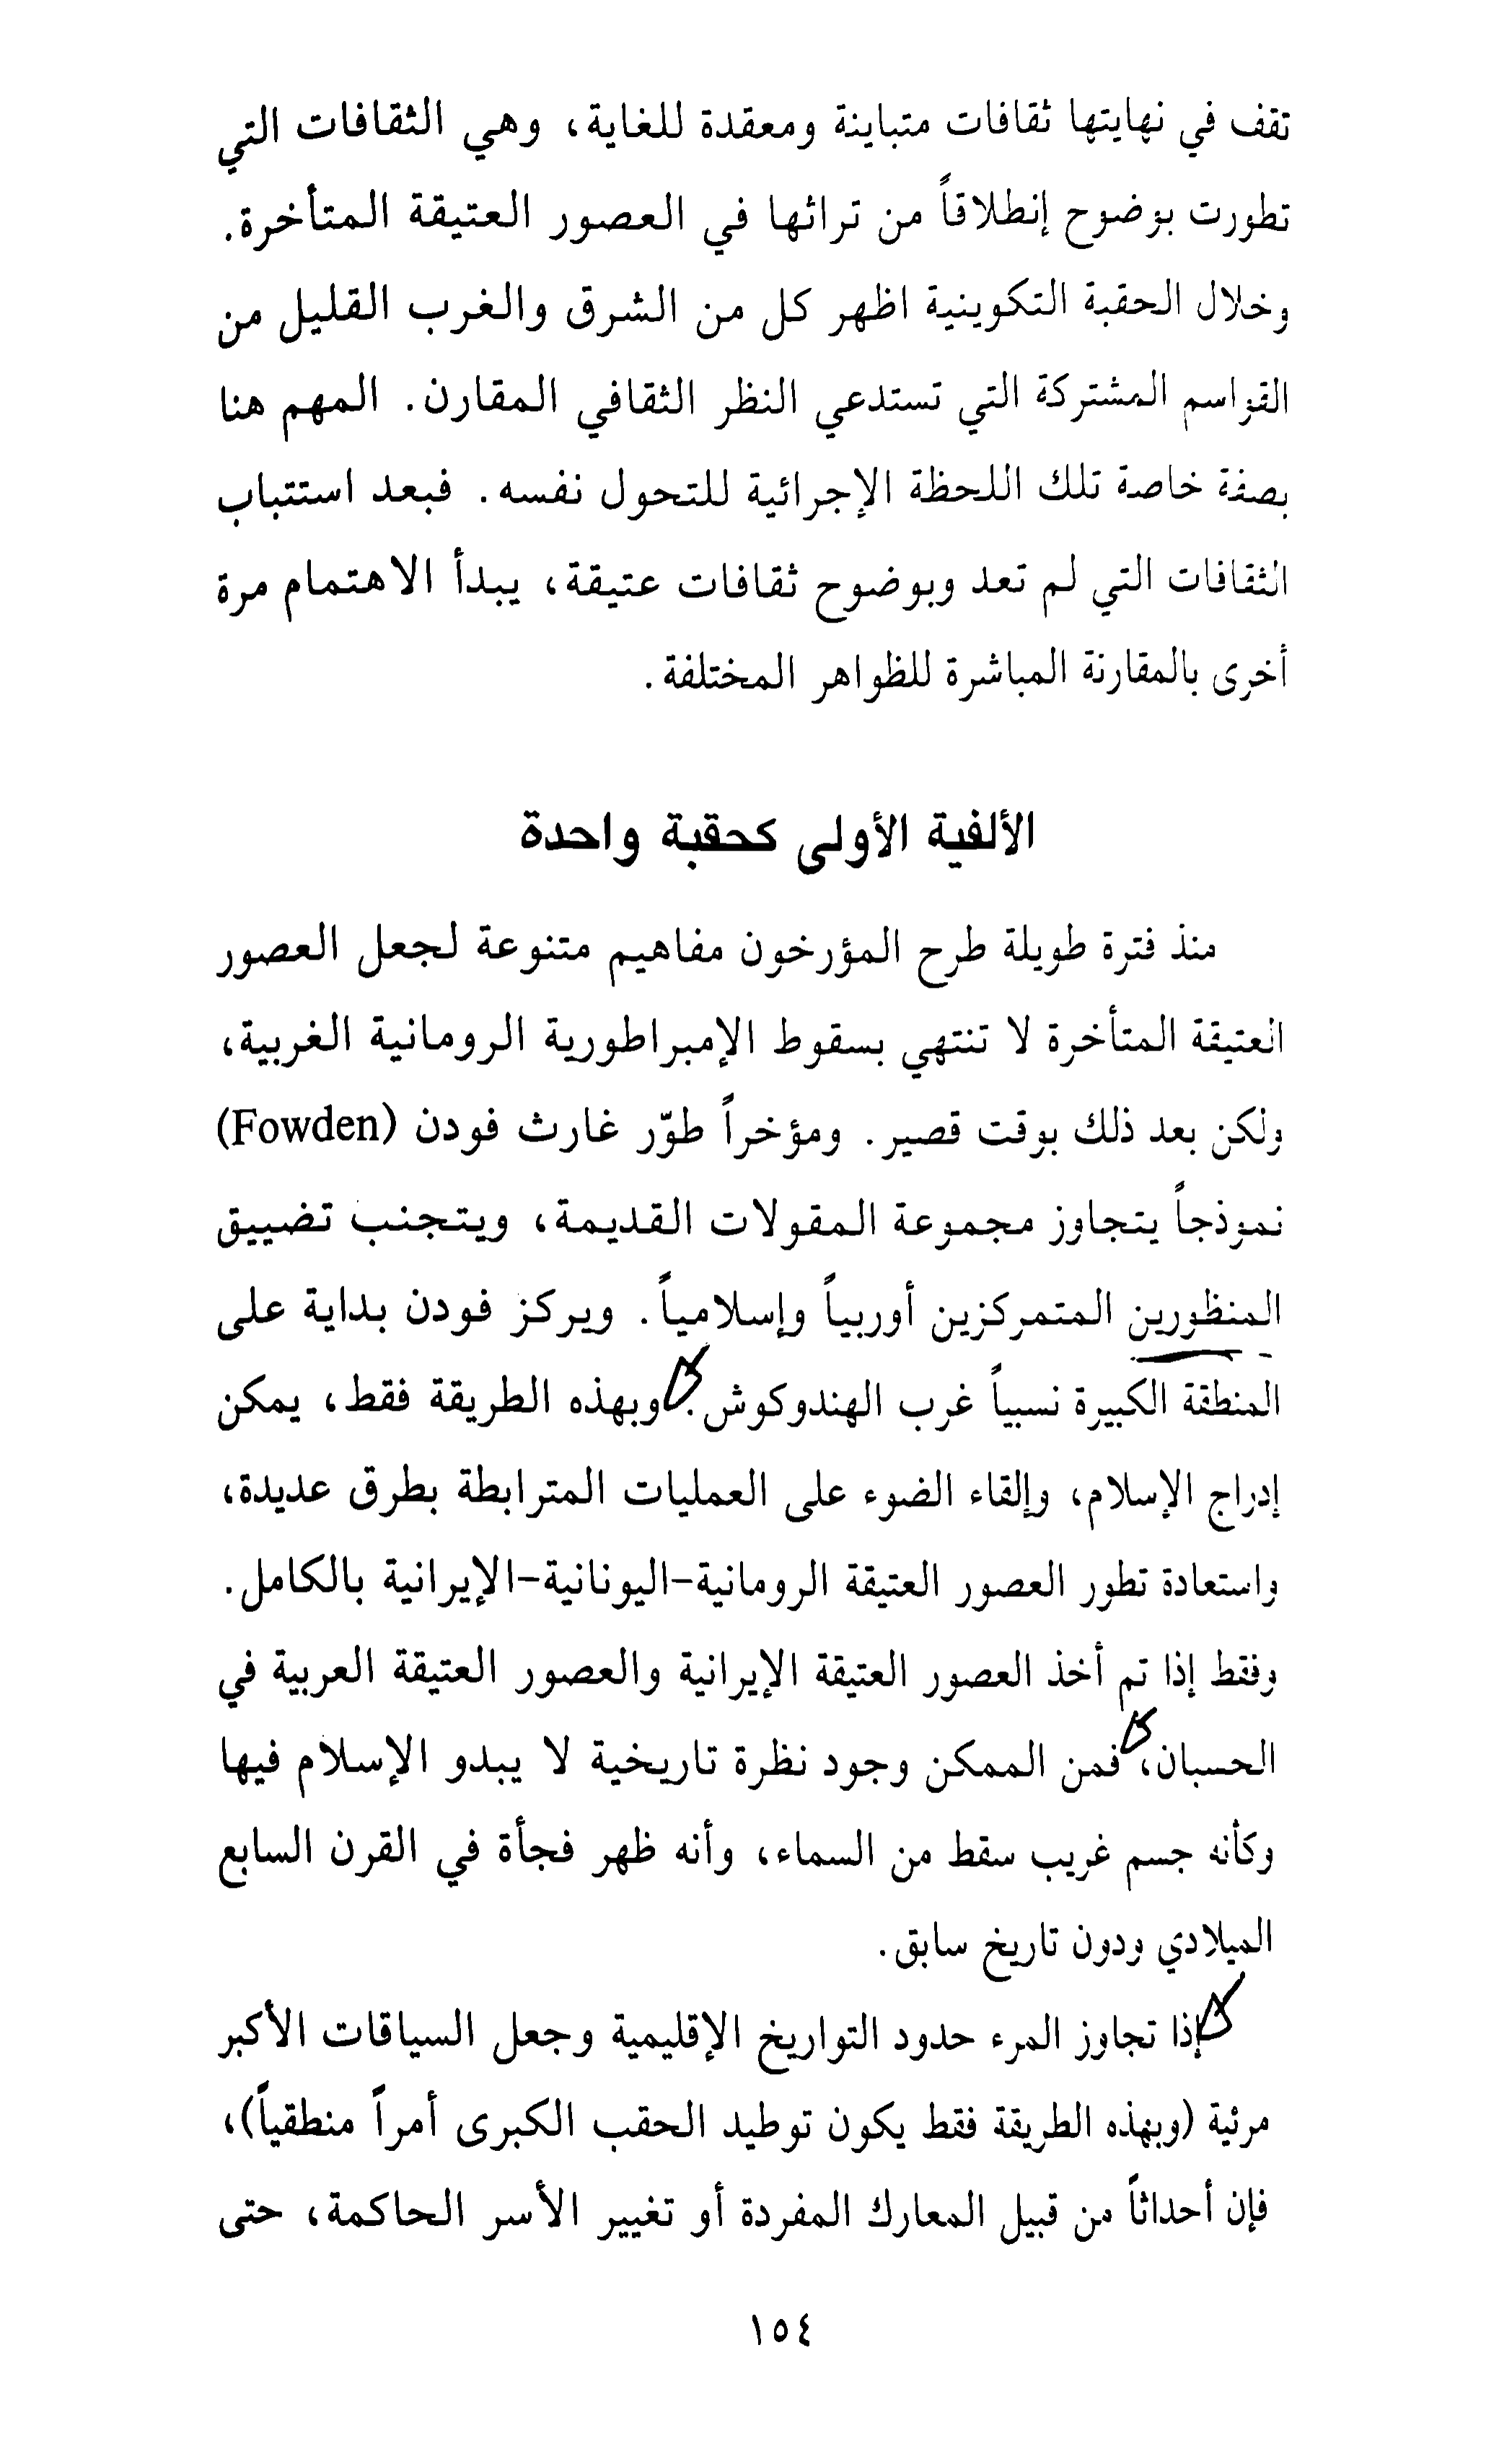 تقف في نهايتها ثقافات متباينة ومعقدة للغاية، وهي الثقافات التي
تطورت بوضوح إنطلاقاً من تراثها في العصور العتيقة المتأخرة.
وخلال الحقبة التكوينية اظهر كل من الشرق والغرب القليل من
القواسم المشتركة التي تستدعي النظر الثقافي المقارن. المهم هنا
بصفة خاصة تلك اللحظة الإجرائية للتحول نفسه. فبعد استتباب
الثقافات التي لم تعد وبوضوح ثقافات عتيقة، يبدأ الاهتمام مرة
أخرى بالمقارنة المباشرة للظواهر المختلفة.
الألفية الأولى كحقبة واحدة
منذ فترة طويلة طرح المؤرخون مفاهيم متنوعة لجعل العصور
العتيقة المتأخرة لا تنتهي بسقوط الإمبراطورية الرومانية الغربية،
ولكن بعد ذلك بوقت قصير. ومؤخراً طوّر غارث فودن (Fowden)
نموذجاً يتجاوز مجموعة المقولات القديمة، ويتجنب تضييق
المنظورين المتمركزين أوربياً وإسلامياً. ويركز فودن بداية على
المنطقة الكبيرة نسبياً غرب الهندوكوش. وبهذه الطريقة فقط، يمكن
إدراج الإسلام، وإلقاء الضوء على العمليات المترابطة بطرق عديدة،
واستعادة تطور العصور العتيقة الرومانية-اليونانية-الإيرانية بالكامل.
وفقط إذا تم أخذ العصور العتيقة الإيرانية والعصور العتيقة العربية في
الحسبان، فمن الممكن وجود نظرة تاريخية لا يبدو الإسلام فيها
وكأنه جسم غريب سقط من السماء، وأنه ظهر فجأة في القرن السابع
الميلادي ودون تاريخ سابق.
إذا تجاوز المرء حدود التواريخ الإقليمية وجعل السياقات الأكبر
مرئية (وبهذه الطريقة فقط يكون توطيد الحقب الكبرى أمراً منطقياً)،
فإن أحداثاً من قبيل المعارك المفردة أو تغيير الأسر الحاكمة، حتى
١٥٤